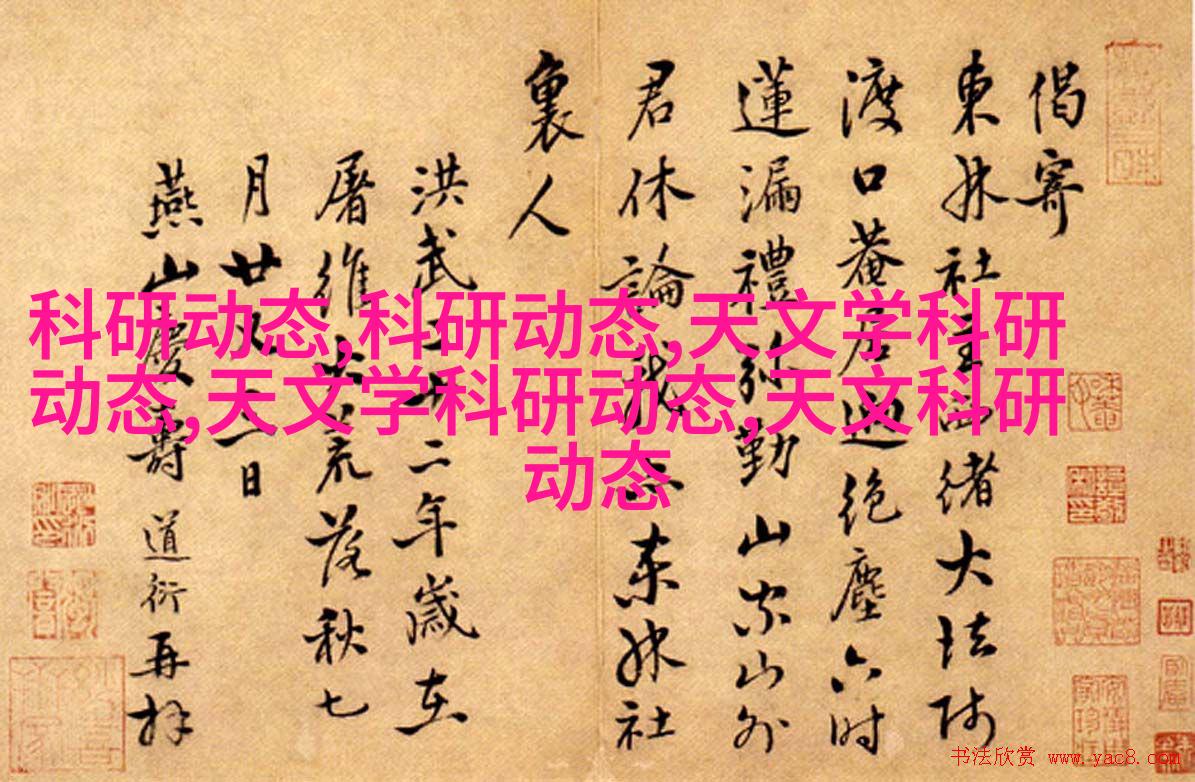 偈寄
東林社主緒大法師
渡口菴居迥絕塵六時
蓮漏禮弥勤山家山外
君休論我亦東林社
裏人
洪武二十二年歲在
屠維大荒落秋七
月廿二日
燕山慶壽道衍再拜
科研动态,科研动态,天文学科研
动态,天文学科研动态,天文科研
动态
书法欣赏 www.yac8.com